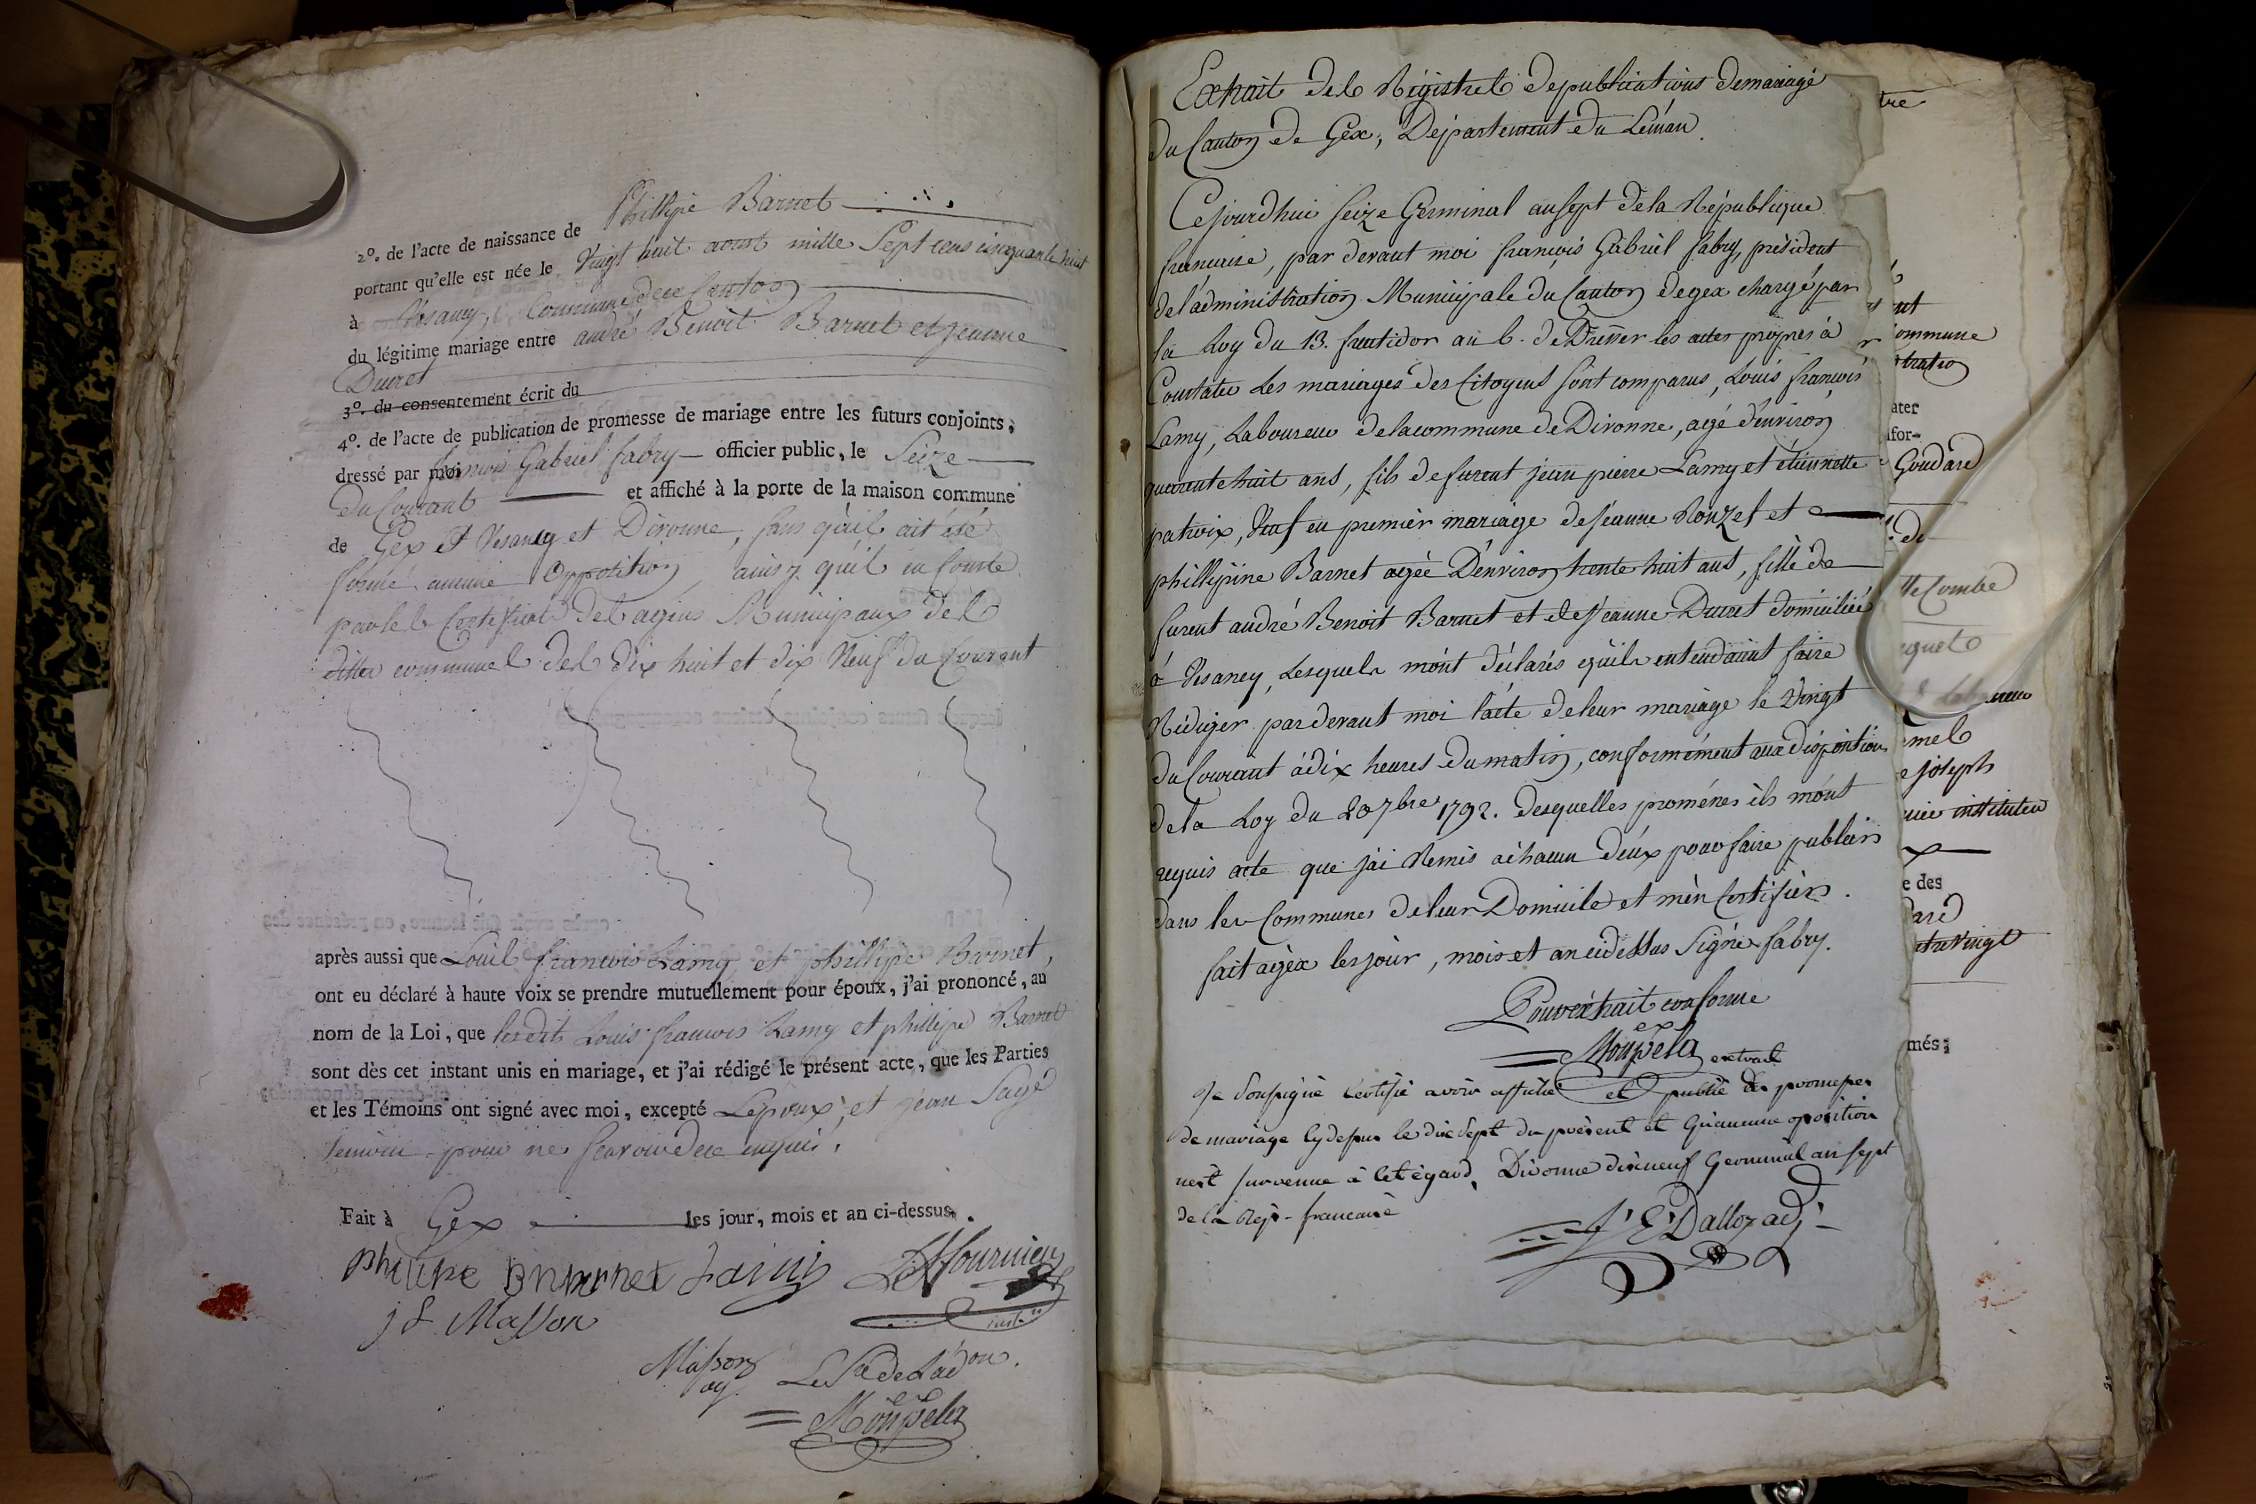 2º. de l'acte de naissance de Phillipe Barnet
portant qu'elle est née le Vingt huit aoust mille Sept cens cinquante huit
à Vésancy, Commune de ce Canton
du légitime mariage entre andré Benoit Barnet et jeanne
Ducret
3º. du consentement écrit du
4º. de l'acte de publication de promesse de mariage entre les futurs conjoints,
dressé par moi françois Gabriel fabry officier public, le Seize
du Courant et affiché à la porte de la maison commune
de Gex et Vesancy et Divonne, sans qu'il ait été
formé aucune Opposition ainsy qu'il en Conste
par les Certificat des agens Municipaux des
dittes communes des dix huit et dix Neuf du Courant
après aussi que Louis françois Lamy et phillipe Barnet,
ont eu déclaré à haute voix se prendre mutuellement pour époux, j'ai prononcé, au
nom de la Loi, que lesdits Louis françois Lamy et phillipe Barnet
sont dès cet instant unis en mariage, et j'ai rédigé le présent acte, que les Parties
et les Témoins ont signé avec moi, excepté L'epoux, et jean Sage
temoin pour ne scavoir de ce enquis.
Fait à Gex les jour, mois et an ci-dessus.
philipe Barnet Lami Fournier
j L Masson
Masson ag. Le Sre de L'adon.
Moupela
Extrait des Régistres de publications de mariage
du Canton de Gex, Département du Léman.
Cejourdhui seize Germinal an sept de la République
francaise, par devant moi francois Gabriel fabry, président
de l'administration Municipale du Canton de gex chargé par
la Loy du 13. fructidor an 6. de Dresser les actes propres à
Constater Les mariages des Citoyens sont comparus, Louis francois
Lamy, Laboureur de la commune de Divonne, agé d'environ
quarente huit ans, fils de furent jean pierre Lamy et étiennette
patroix, Veuf en premier mariage de Jéanne Rouzet et
phillipine Barnet agée D'environ trente huit ans, fille de
furent andré Benoit Barnet et de Jeanne Ducret domiciliée
à Vesancy, Lesquels m'ont déclarés qu'ils entendaint faire
Rédiger par devant moi l'acte de leur mariage le Vingt
du Courant à dix heures du matin, conformément aux dispositions
de la Loy du 20 7bre 1792. desquelles promésses ils m'ont
requis acte que j'ai Remis à chacun d'eux pour faire publier
dans les Communes de leur Domicile et m'en Certifier.
fait à gex les jour, mois et an cidessus Signé fabry.
Pour extrait conforme
Moupela
Je Soussigné Certifie avoir affiché extrait et publié les promesses
de mariage cy dessus le dix sept du présent et qu'aucune oposition
n'est survenue à cet égard, Divonne dixneuf Germinal an sept
de la Rep. francaise
J. E. Dalloz adj.
tre
ommune
ater
for-
Goudard
de
Combe
mel
e joseph
instituteur
e des
dard
més;